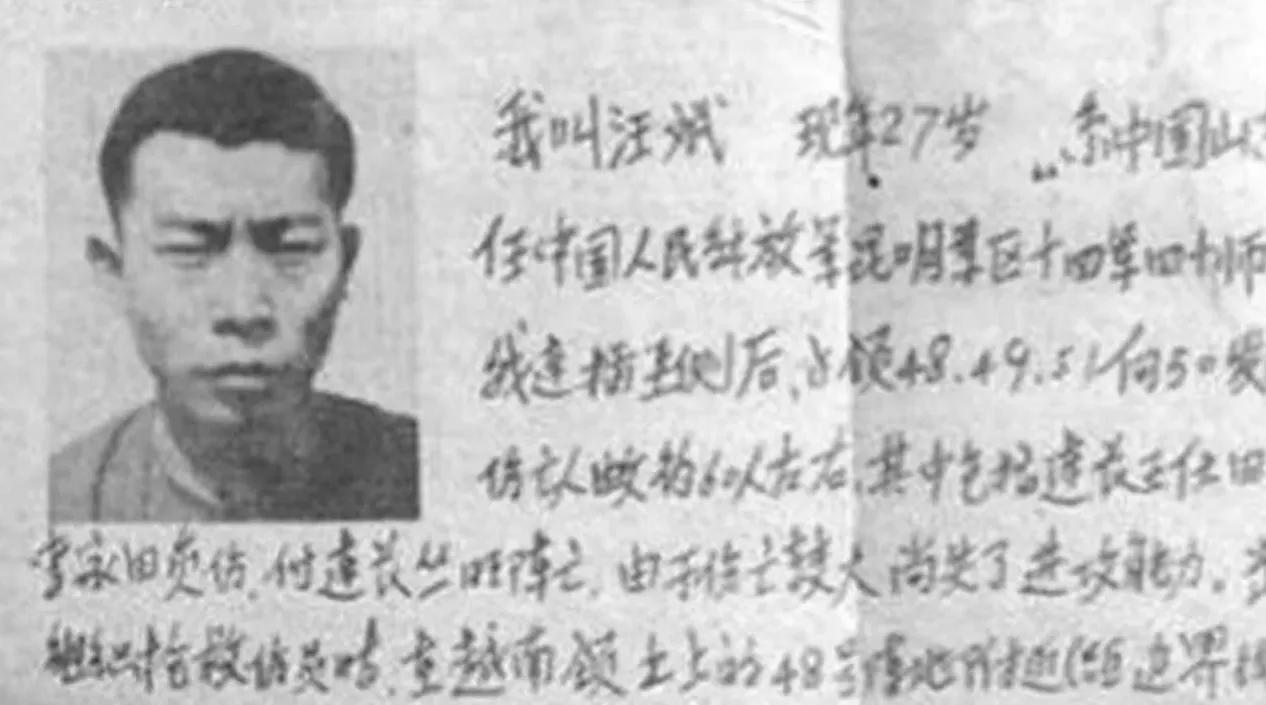 我叫汪斌 现年27岁 系中国山
任中国人民解放军昆明军区十四军四十师
我连插至侧后,占领48.49.51向50发
伤亡人数约60人左右,其中包括连长
负伤,付连长丛旺阵亡,由于伤亡较大尚失了进攻能力。
组织抢救伤员时,在越南领土上的48号阵地附近(距边界